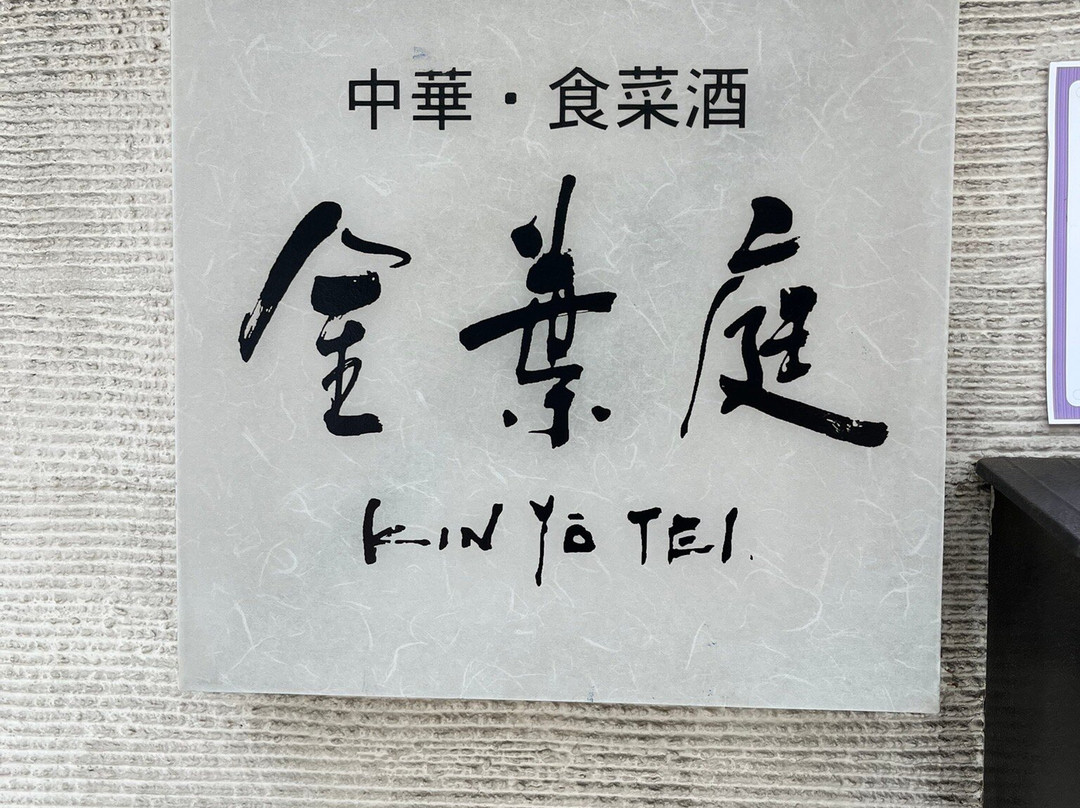 中華・食菜酒
金葉庭
KIN YŌ TEI.